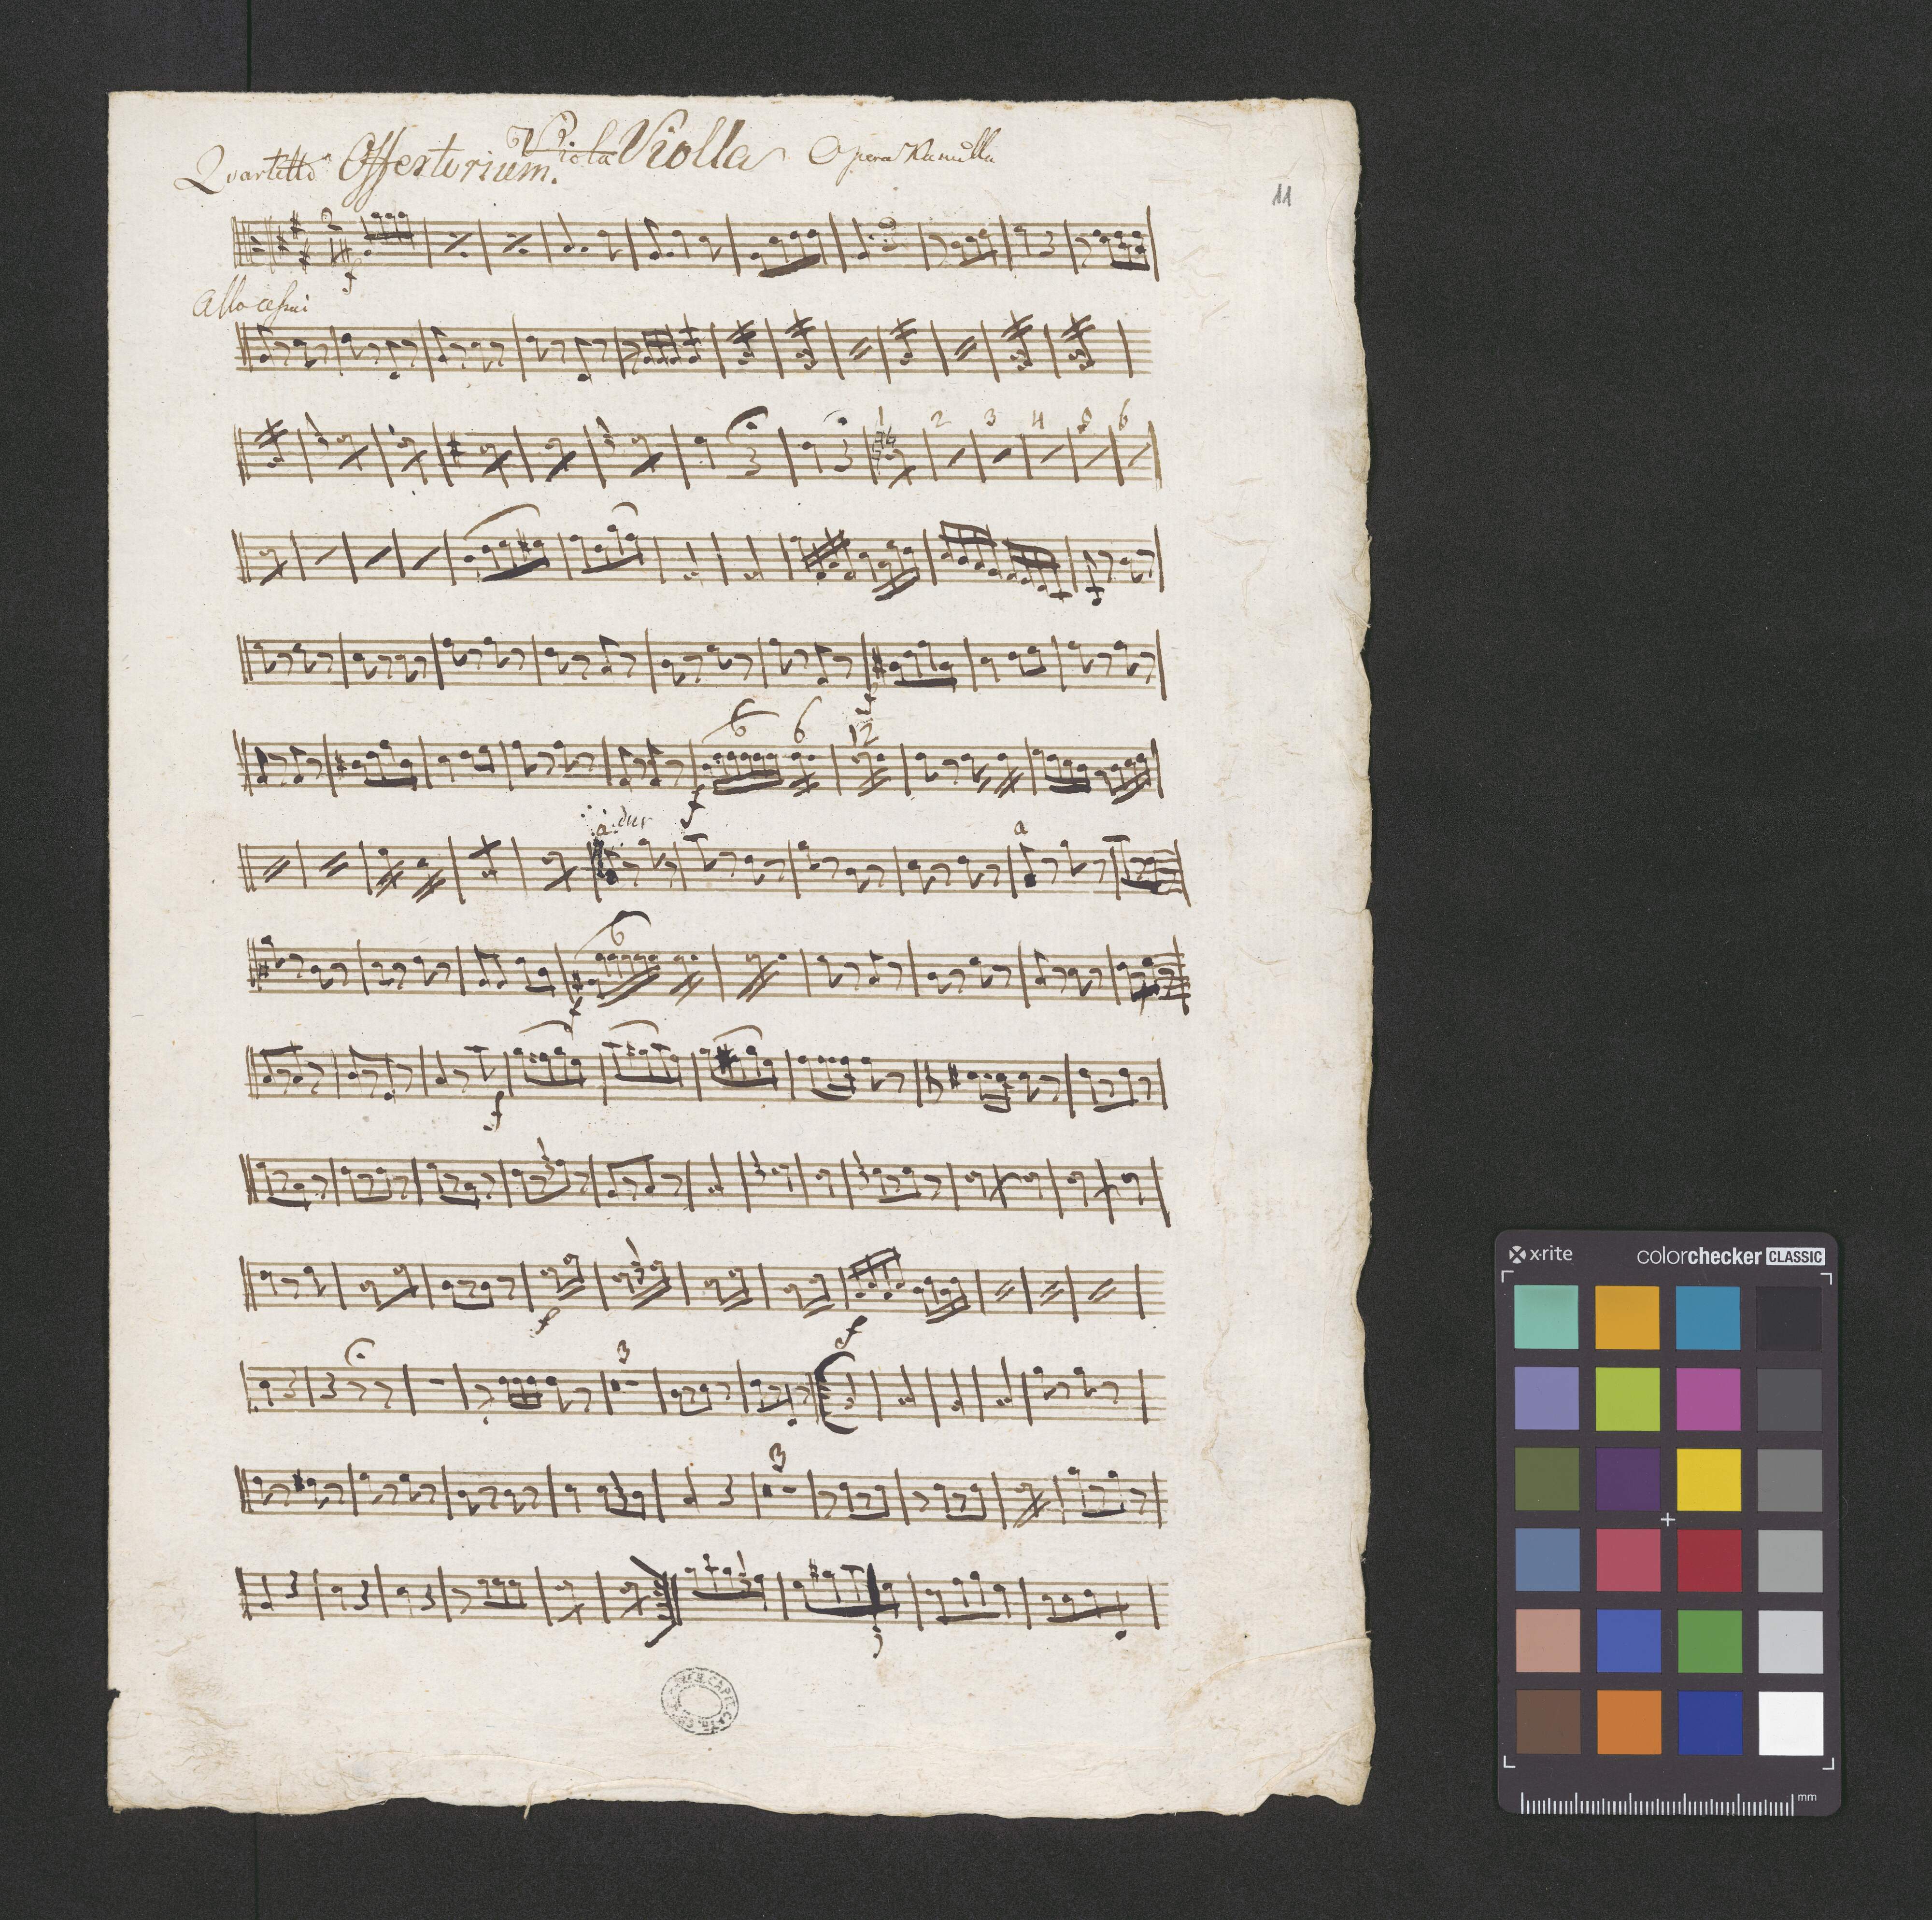 Quartetto Offertorium. Viola Violla Opera Kamilla
11
f
Allo assai
1 2 3 4 5 6
6 6 12
f
a dur a
6
f
f
f f
3
3
x-rite colorchecker CLASSIC
mm